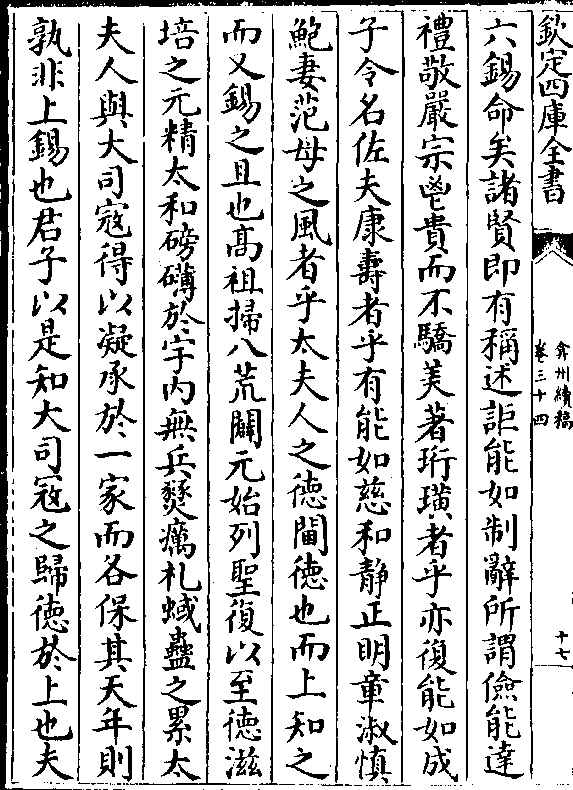 欽定四庫全書
弇州續稿
卷三十四
十七
六錫命矣諸賢即有稱述詎能如制辭所謂儉能達
禮敬嚴宗鬯貴而不驕美著珩璜者乎亦復能如成
子令名佐夫康壽者乎有能如慈和静正明章淑慎
鮑妻范母之風者乎太夫人之徳閫徳也而上知之
而又錫之且也髙祖掃八荒闢元始列聖復以至徳滋
培之元精太和磅礴於宇内無兵燹癘札蜮蠱之累太
夫人與大司寇得以凝承於一家而各保其天年則
孰非上錫也君子以是知大司宼之歸徳於上也夫